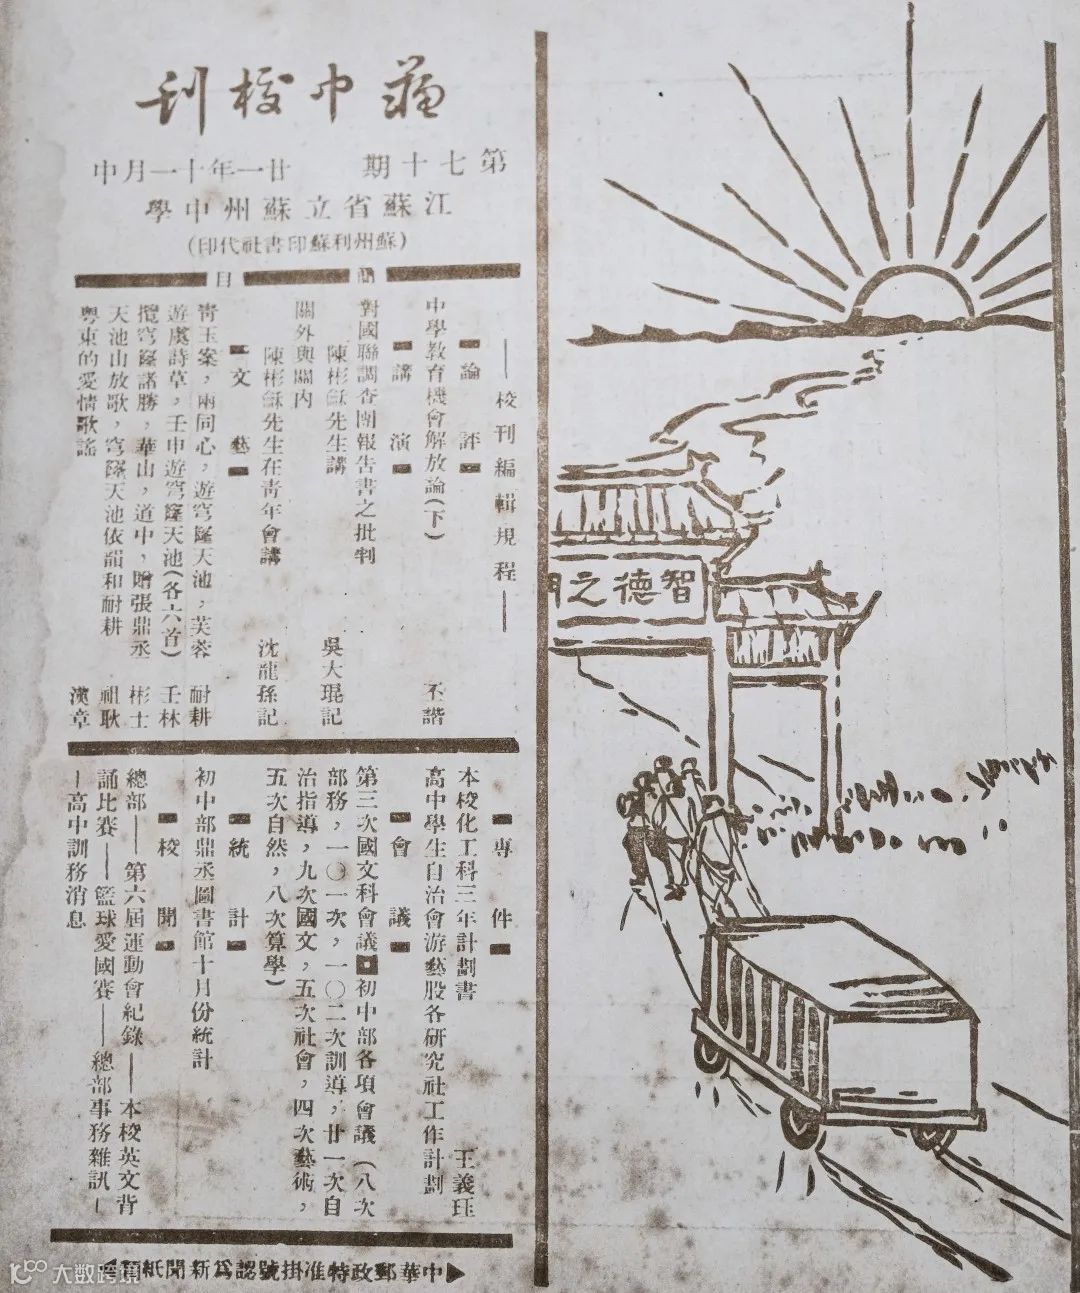 蘇中校刊
第七十期　廿一年十一月中
江蘇省立蘇州中學
(蘇州利蘇印書社代印)
簡目
——校刊編輯規程——
論評
中學教育機會解放論(下)　丕諧
講演
對國聯調查團報告書之批判
陳彬龢先生講　吳大琨記
關外與關內
陳彬龢先生在青年會講　沈龍孫記
文藝
青玉案，兩同心，遊穹窿天池，芙蓉　耐耕
遊虞詩草，壬申遊穹窿天池(各六首)　壬林
攬穹窿諸勝，華山，道中，贈張鼎丞　彬士
天池山放歌，穹窿天池依韻和耐耕　祖耿
粵東的愛情歌謠　漢章
專件
本校化工科三年計劃書　王義珏
高中學生自治會游藝股各研究社工作計劃
會議
第三次國文科會議　初中部各項會議（八次
部務，一〇一次，一〇二次訓導，廿一次自
治指導，九次國文，五次社會，四次藝術，
五次自然，八次算學）
統計
初中部鼎丞圖書館十月份統計
校聞
總部——第六屆運動會紀錄——本校英文背
誦比賽——籃球愛國賽——總部事務雜訊—
—高中訓務消息
中華郵政特准掛號認爲新聞紙類
智德之門
大数跨境